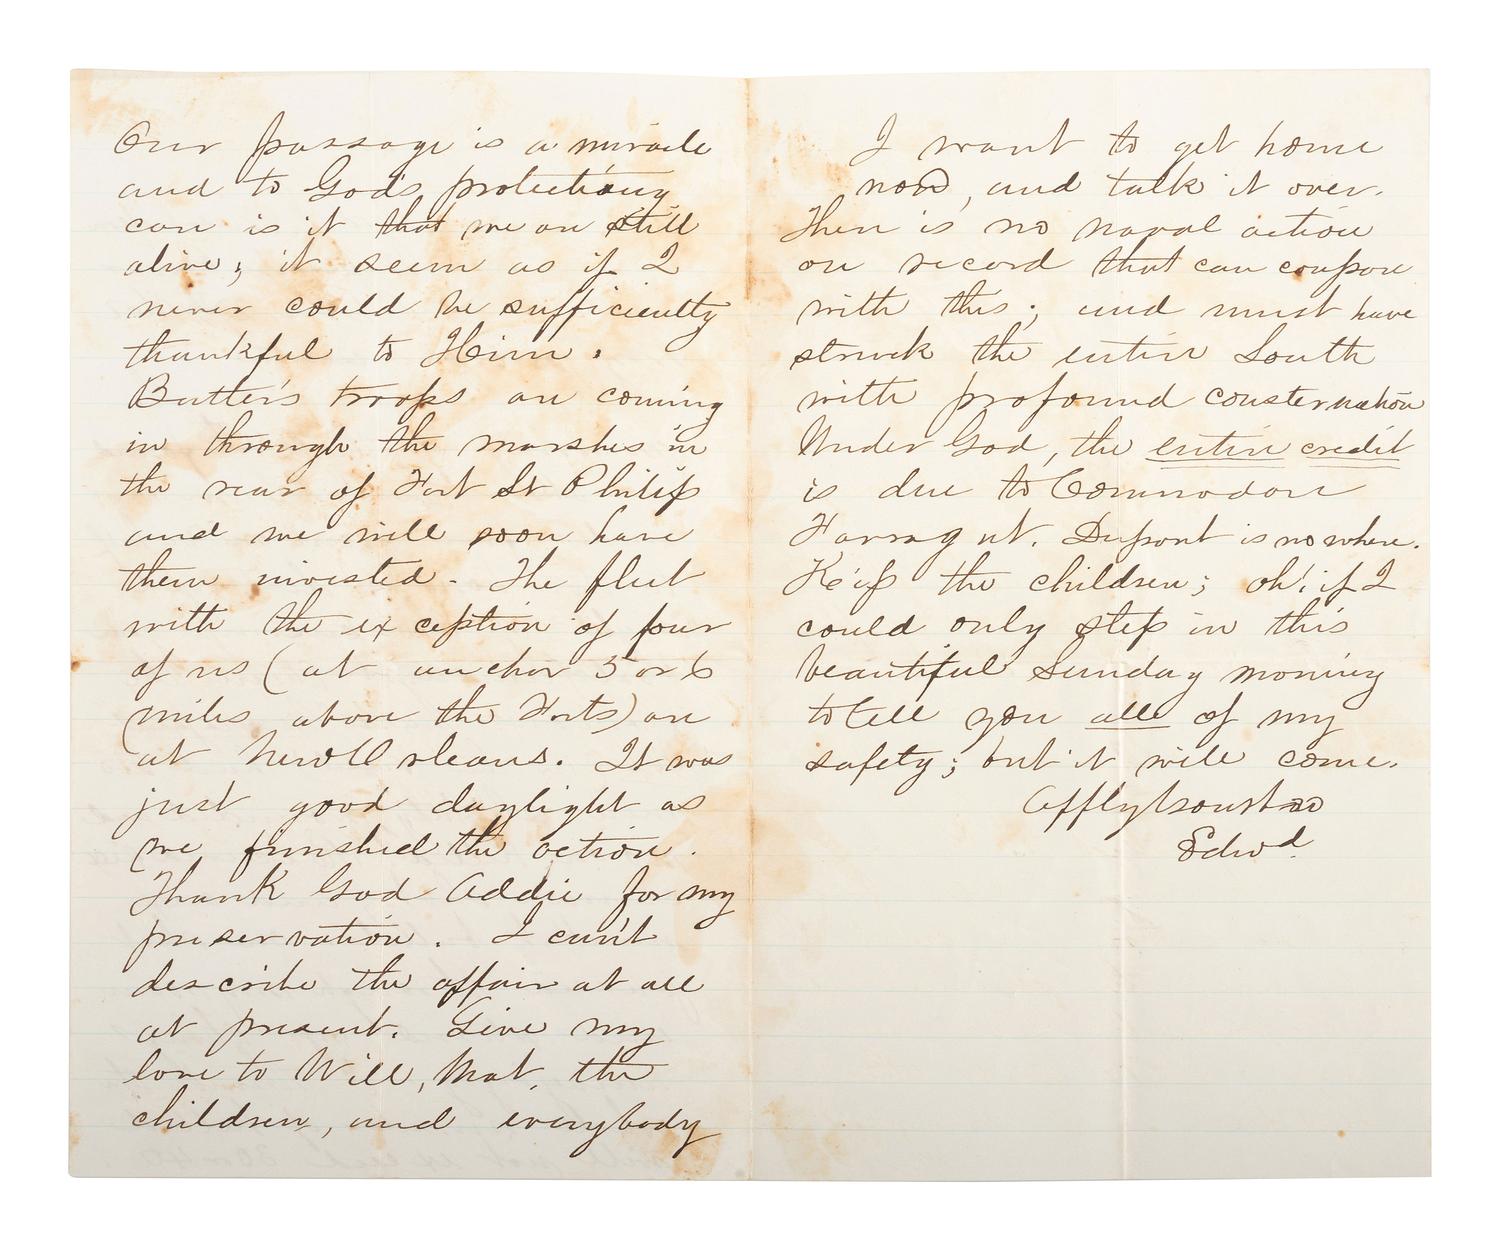 Our passage is a miracle
and to God's protecting
care is it that we are still
alive; it seems as if I
never could be sufficiently
thankful to Him.
Butler's troops are coming
in through the marshes in
the rear of Fort St Philip
and we will soon have
them invested. The fleet
with the exception of four
of us (at anchor 5 or 6
miles above the Forts) are
at New Orleans. It was
just good daylight as
we finished the action.
Thank God Addie for my
preservation. I can't
describe the affair at all
at present. Give my
love to Will, Mat, the
children, and everybody
I want to get home
now, and talk it over.
There is no naval action
on record that can compare
with this; and must have
struck the entire South
with profound consternation
Under God, the entire credit
is due to Commodore
Farragut. Dupont is nowhere.
Kiss the children; oh! if I
could only step in this
beautiful Sunday morning
to tell you all of my
safety; but it will come.
Affly
Edwd